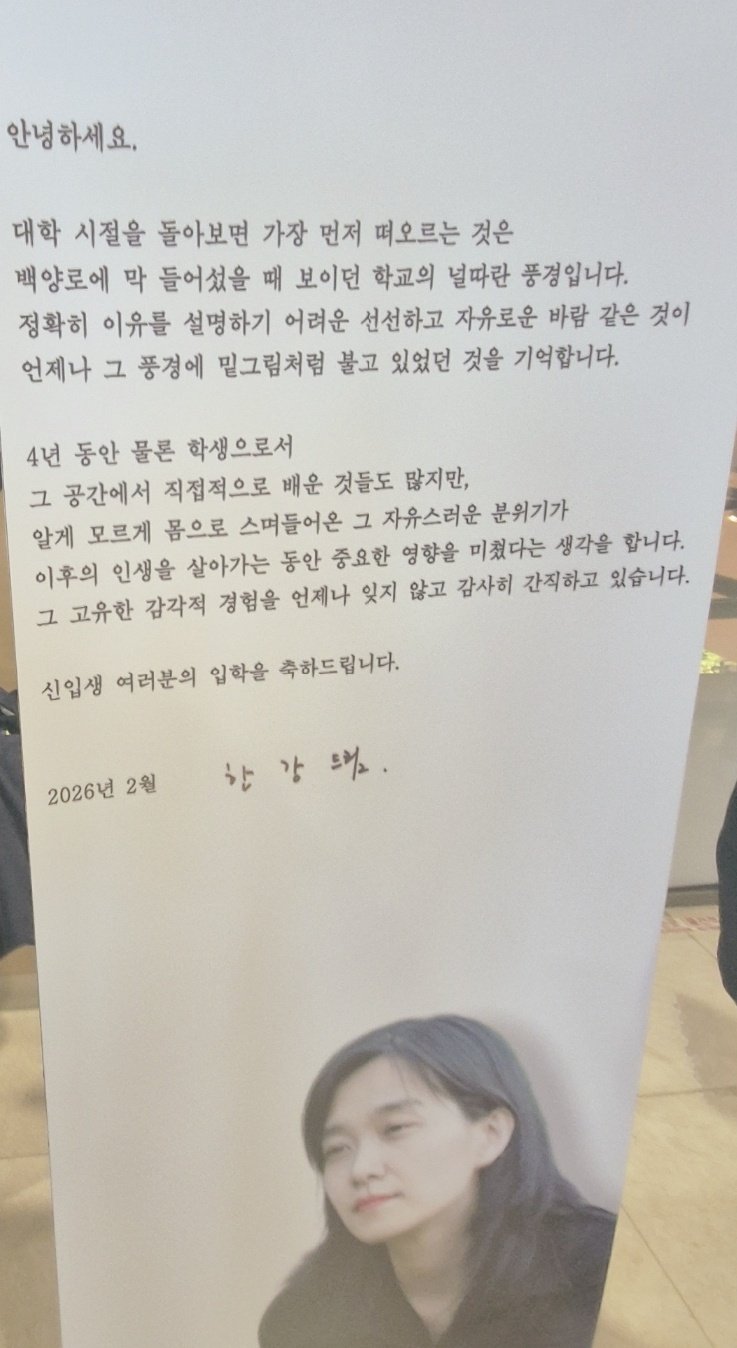 안녕하세요.
대학 시절을 돌아보면 가장 먼저 떠오르는 것은
백양로에 막 들어섰을 때 보이던 학교의 널따란 풍경입니다.
정확히 이유를 설명하기 어려운 선선하고 자유로운 바람 같은 것이
언제나 그 풍경에 밑그림처럼 불고 있었던 것을 기억합니다.
4년 동안 물론 학생으로서
그 공간에서 직접적으로 배운 것들도 많지만,
알게 모르게 몸으로 스며들어온 그 자유스러운 분위기가
이후의 인생을 살아가는 동안 중요한 영향을 미쳤다는 생각을 합니다.
그 고유한 감각적 경험을 언제나 잊지 않고 감사히 간직하고 있습니다.
신입생 여러분의 입학을 축하드립니다.
2026년 2월 한 강 드림.